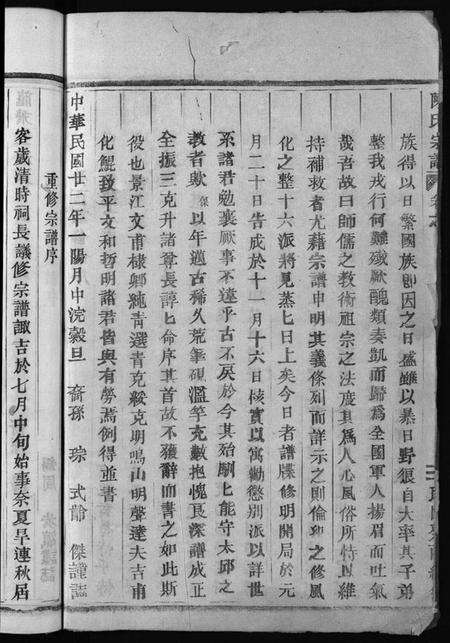 陳氏宗譜
族得以日繁國族即因之日盛雖以暴日野狼自大率其子弟
整我戎行何難殲厥醜類奏凱而歸為全國軍人揚眉而吐氣
哉昔故曰師儒之教術祖宗之法度其為人心風俗所恃以維
持補救者尤藉宗譜申明其義條列而詳示之則倫紀之修風
化之整十六派將見蒸七日上矣今日者譜牒修明開局於元
月二十日告成於十一月十六日核實以寓勸懲別派以詳世
系諸君勉襄厥事不遠乎古不戾於今其殆馴七能守太邱之
教者歟 保以年邁古稀久荒筆硯濫竽充數抱愧良深譜成正
全振三克升諸尊長諄七命序其首故不獲辭而書之如此斯
役也景江文甫棣卿純青選青克緩克明鳴山明聲達夫吉甫
化鯤致平文和哲明諸君皆與有勞焉例得並書
中華民國廿二年一陽月中浣穀旦 裔孫 琮 式 傑謹誌
重修宗譜序
客歲清時祠長議修宗譜諏吉於七月中旬始事奈夏旱連秋屆